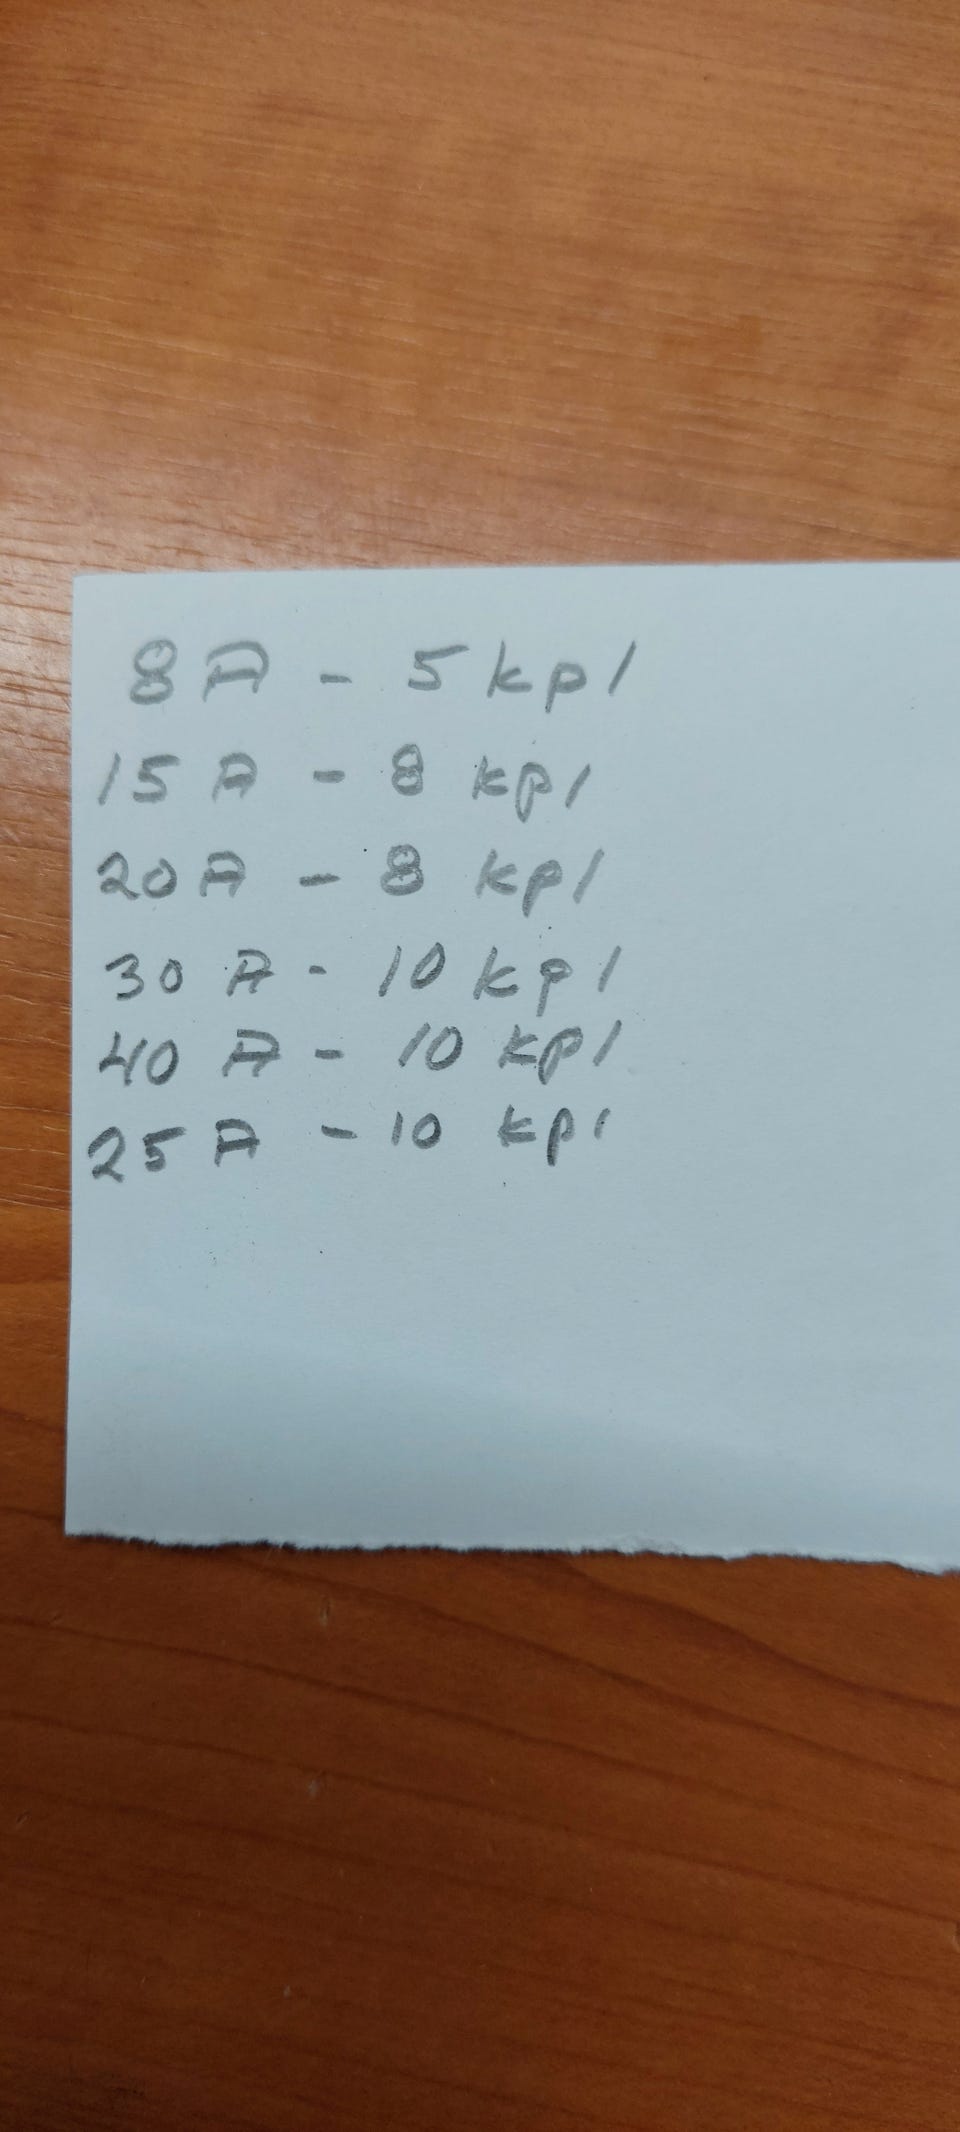 8A - 5 kpl
15 A - 8 kpl
20 A - 8 kpl
30 A - 10 kpl
40 A - 10 kpl
25 A - 10 kpl